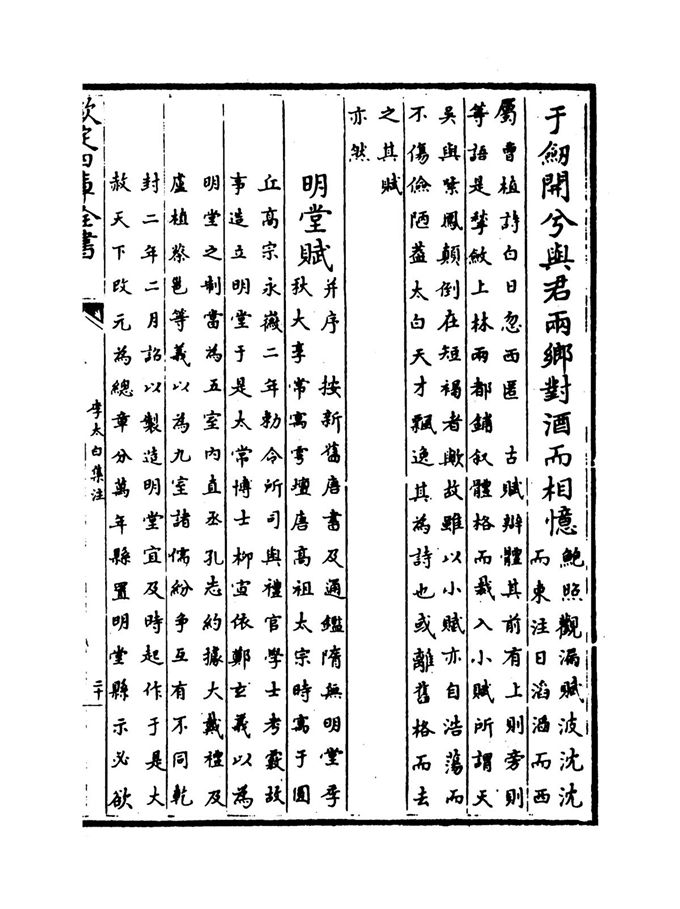 于劒開兮與君兩鄉對酒而相憶鮑照觀漏賦波沈沈
而東注日滔滔而西
屬曹植詩白日忽西匿 古賦辨體其前有上則旁則
等語是摹斂上林兩都鋪叙體格而裁入小賦所謂天
吳與紫鳳顛倒在短褐者歟故雖以小賦亦自浩蕩而
不傷儉陋葢太白天才飄逸其為詩也或離舊格而去
之其賦
亦然
明堂賦并序 按新舊唐書及通鑑隋無明堂季
秋大享常寓雩壇唐高祖太宗時寓于圓
丘高宗永徽二年勅令所司與禮官學士考覈故
事造立明堂于是太常博士柳宣依鄭玄義以為
明堂之制當為五室内直丞孔志約據大戴禮及
盧植蔡邕等義以為九室諸儒紛争互有不同乾
封二年二月詔以製造明堂宜及時起作于是大
赦天下改元為總章分萬年縣置明堂縣示必欲
欽定四庫全書
李太白集注
二十